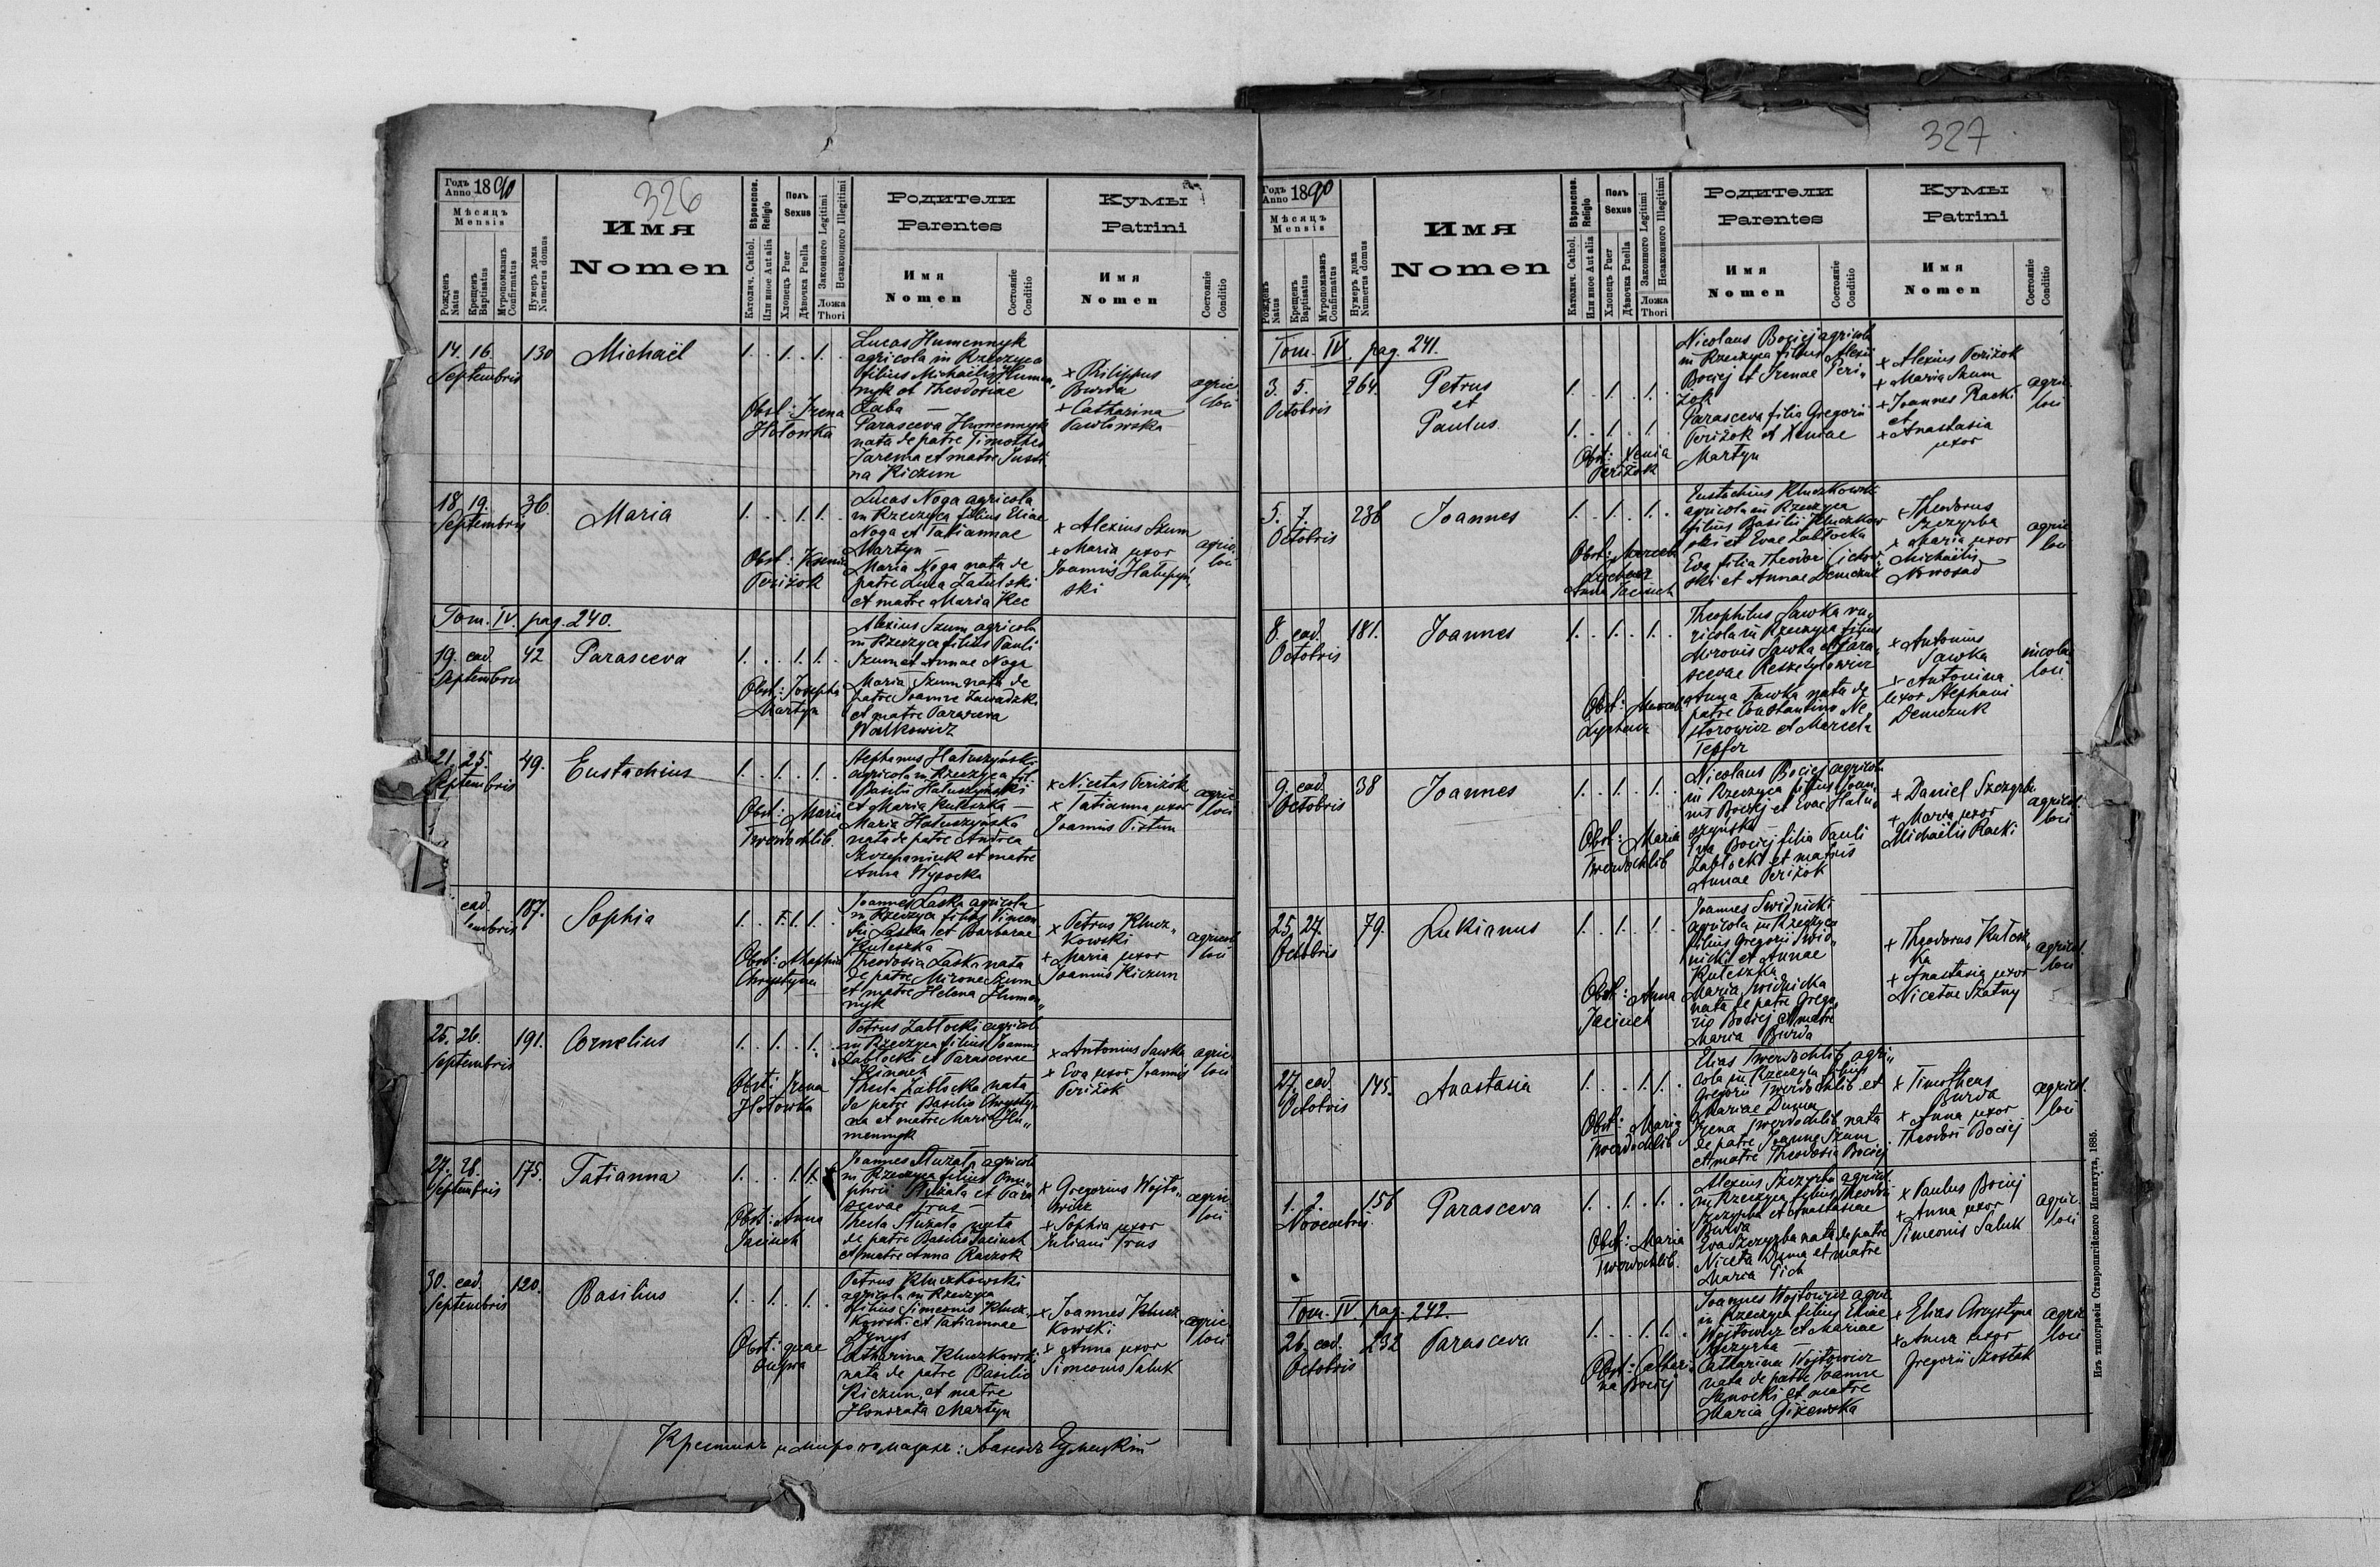 326
Годъ Anno 1890
Мѣсяцъ
Mensis
Рожденъ Natus
Крещенъ Baptisatus
Мѵропомазанъ Confirmatus
Нумеръ дома Numerus domus
Имя
Nomen
Вѣроиспов. Religio
Католич. Cathol.
Или иное Aut alia
Полъ
Sexus
Хлопецъ Puer
Дѣвочка Puella
Законного Legitimi
Незаконного Illegitimi
Ложа
Thori
Родители
Parentes
Имя
Nomen
Состояніе Conditio
Кумы
Patrini
Имя
Nomen
Состояніе Conditio
14. 16.
Septembris
130
Michaël
1. 1. 1.
Obst: Irena
Hołowka
Lucas Humennyk
agricola in Rzeczyca
filius Michaëlis Humen„
nyk et Theodosiae
Żaba —
Parasceva Humennyk
nata de patre Timotheo
Jarema et matre Justi
na Kiczum
+ Philippus
Burda
+ Catharina
Pawłowska
agric.
loci
18. 19.
Septembris
36.
Maria
1. 1. 1.
Obst: Ksenia
Periżok
Lucas Noga agricola
in Rzeczyca filius Eliae
Noga et Tatiannae
Martyn —
Maria Noga nata de
patre Luca Zatulski
et matre Maria Kec
+ Alexius Szum
+ Maria uxor
Joannis
ski
agric.
loci
Tom. IV. pag. 240.
19. ead.
Septembris
42
Parasceva
1. 1. 1.
Obst: Josepha
Martyn
Alexius Szum agricola
in Rzeczyca filius Pauli
Szum et Annae Noga
Maria Szum nata de
patre Joanne Zawadzki
et matre Parasceva
Walkowicz
21. 25.
Septembris
49.
Eustachius
1. 1. 1.
Obst: Maria
Twerdochlib.
Stephanus Hałuszyński
agricola in Rzeczyca fil.
Basilii Hałuszyński
et Maria Kuleszka —
Maria Hałuszyńska
nata de patre Andrea
Szczepaniuk et matre
Anna Wysocka
+ Nicetas Periżok
+ Tatianna uxor
Joannis Pistun
agric.
loci
ead.
tembris
187.
Sophia
1. 1. 1.
Obst:
Chrystyna
Joannes Laska agricola
in Rzeczyca filius Vincen
tii Laska et Barbarae
Kuleszka
Theodosia Laska nata
de patre Mirone Szum
et matre Helena Humen„
nyk
+ Petrus Klucz„
kowski
+ Maria uxor
Joannis Kiczum
agricol.
loci
25. 26.
Septembris
191.
Cornelius
1. 1. 1.
Obst: Irena
Hołowka
Petrus Zabłocki agricol.
in Rzeczyca filius Joannis
Zabłocki et Parascevae
Thecla Zabłocka nata
de patre Basilio Chrysty„
na et matre Maria Hu„
mennyk
+ Antonius Sawka
+ Eva uxor Joannis
Periżok
agric.
loci
27. 28.
Septembris
175.
Tatianna
1. 1. 1.
Obst: Anna
Jaciuch
Joannes Stużała agricola
in Rzeczyca filius Onu„
phrii Stużała et Para
scevae Trus —
Thecla Stużała nata
de patre Basilio Jaciuch
et matre Anna Raczok
+ Gregorius Wojto„
wicz
+ Sophia uxor
Juliani Trus
agric.
loci
30. ead.
Septembris
120.
Basilius
1. 1. 1.
Obst: quae
supra
Petrus Kluczkowski
agricola in Rzeczyca
filius Simeonis Klucz„
kowski et Tatiannae
Dynys
Catharina Kluczkowski
nata de patre Basilio
Kiczun, et matre
Honorata Martyn
+ Joannes Klucz„
kowski
+ Anna uxor
Simeonis Saluk
agric.
loci
327
Годъ Anno 1890
Мѣсяцъ
Mensis
Рожденъ Natus
Крещенъ Baptisatus
Мѵропомазанъ Confirmatus
Нумеръ дома Numerus domus
Имя
Nomen
Вѣроиспов. Religio
Католич. Cathol.
Или иное Aut alia
Полъ
Sexus
Хлопецъ Puer
Дѣвочка Puella
Законного Legitimi
Незаконного Illegitimi
Ложа
Thori
Родители
Parentes
Имя
Nomen
Состояніе Conditio
Кумы
Patrini
Имя
Nomen
Состояніе Conditio
Tom. IV. pag. 241.
3. 5.
Octobris
264.
Petrus
et
Paulus.
1. 1. 1.
1. 1. 1.
Obst: Xenia
Periżok
Nicolaus Bociej agricola
in Rzeczyca filius Alexii
Bociej et Irenae Peri„
żok
Parasceva filia Gregorii
Periżok et Xeniae
Martyn
+ Alexius Periżok
+ Maria Szum
+ Joannes Racki
et
+ Anastasia
uxor
agric.
loci
5. 7.
Octobris
236
Joannes
1. 1. 1.
Anna Jaciuch
Eustachius Kluczkowski
agricola in Rzeczyca
filius Basilii Kluczkow
ski et Evae Zabłocka
Eva filia Theodori Cichow
ski et Annae Demczuk
+ Theodorus
Szczyrba
+ Maria uxor
Michaëlis
Nowosad
agric.
loci
8. ead.
Octobris
181.
Joannes
1. 1. 1.
Theophilus Sawka
ricola in Rzeczyca filius
Mironis Sawka et Para„
scevae Reszetyłowicz
Anna Sawka nata de
patre Constantino Ne„
storowicz et Marcela
Tepfer
+ Antonius
Sawka
+ Antonina
uxor Stephani
Demczuk
loci
9. ead.
Octobris
38
Joannes
1. 1. 1.
Obst: Maria
Twerdochlib
Nicolaus Bociej agricola
in Rzeczyca filius Joan„
nis Bociej et Evae Hału„
szyńska
Eva Bociej filia Pauli
Zabłocki et matris
Annae Periżok
+ Daniel Szczyrba
+ Maria uxor
Michaëlis Racki
agricol.
loci
25. 27.
Octobris
79.
Lukianus
1. 1. 1.
Obst: Anna
Jaciuch
Joannes Swidnicki
agricola in Rzeczyca
filius Gregorii Swid„
nicki et Annae
Kuleszka
Maria Swidnicka
nata de patre Grego„
rio Bociej et matre
Maria Burda
+ Theodorus Kulesz
ka
+ Anastasia uxor
Nicetae Szatny
agricol.
loci
27. ead.
Octobris
145.
Anastasia
1. 1. 1.
Obst: Maria
Twerdochlib
Elias Twerdochlib agri„
cola in Rzeczyca filius
Gregorii Twerdochlib et
Mariae Duma
Irena Twerdochlib nata
de patre Joanne Szum
et matre Theodosia Bociej
+ Timotheus
Burda
+ Anna uxor
Theodori Bociej
agricol.
loci
1. 2.
Novembris.
156
Parasceva
1. 1. 1.
Obst: Maria
Twerdochlib.
Alexius Szczyrba agricol.
in Rzeczyca filius Theodori
Szczyrba et Anastasiae
Burda
Eva Szczyrba nata de patre
Niceta Duma et matre
Maria Pich
+ Paulus Bociej
+ Anna uxor
Simeonis Saluk
agric.
loci
Tom. IV. pag. 242.
26. ead.
Octobris
232
Parasceva
1. 1. 1.
Obst: Cathari
na Bociej
Joannes Wojtowicz agric.
in Rzeczyca filius Eliae
Wojtowicz et Mariae
Szczyrba —
Catharina Wojtowicz
nata de patre Joanne
Sanocki et matre
Maria Giżewska
+ Elias Chrystyna
+ Anna uxor
Gregorii
agric.
loci
Изъ типографіи Ставропигійского Института, 1885.